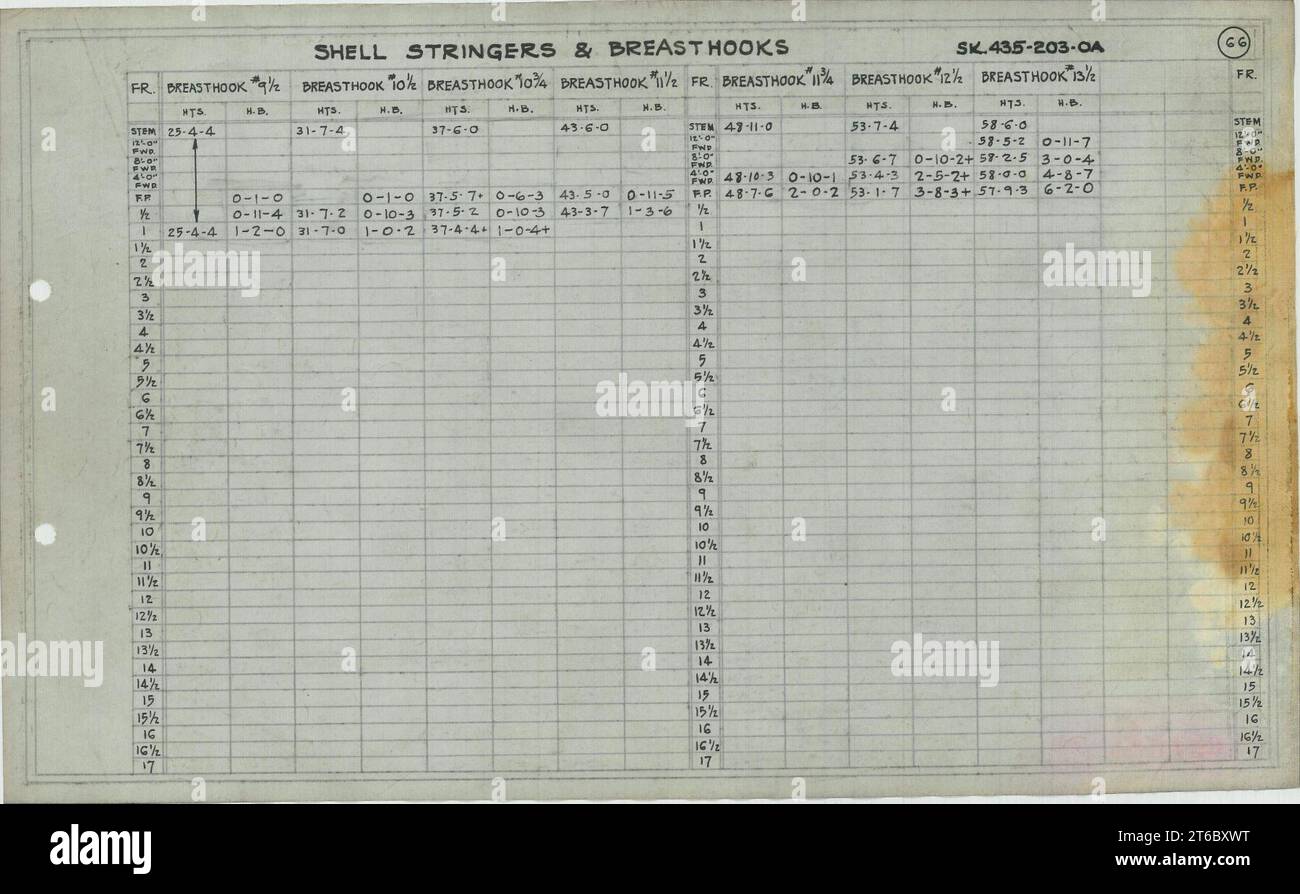 SHELL STRINGERS & BREASTHOOKS SK.435-203-0A 66
FR. BREASTHOOK #9½ BREASTHOOK #10½ BREASTHOOK #10¾ BREASTHOOK #11½ FR. BREASTHOOK #11¾ BREASTHOOK #12½ BREASTHOOK #13½ FR.
HTS. H.B. HTS. H.B. HTS. H.B. HTS. H.B. HTS. H.B. HTS. H.B. HTS. H.B.
STEM 25-4-4 31-7-4 37-6-0 43-6-0 STEM 49-11-0 53-7-4 58-6-0 STEM
12'-0" FWD. 12'-0" FWD 58-5-2 0-11-7 12'-0" FWD.
8'-0" FWD 8'-0" FWD 53-6-7 0-10-2+ 58-2-5 3-0-4 8'-0" FWD
4'-0" FWD. 4'-0" FWD. 48-10-3 0-10-1 53-4-3 2-5-2+ 58-0-0 4-8-7 4'-0" FWD.
F.P. 0-1-0 0-1-0 37-5-7+ 0-6-3 43-5-0 0-11-5 F.P. 48-7-6 2-0-2 53-1-7 3-8-3+ 57-9-3 6-2-0 F.P.
½ 0-11-4 31-7-2 0-10-3 37-5-2 0-10-3 43-3-7 1-3-6 ½ ½
1 25-4-4 1-2-0 31-7-0 1-0-2 37-4-4+ 1-0-4+ 1 1
1½ 1½ 1½
2 2 2
2½ 2½ 2½
3 3 3
3½ 3½ 3½
4 4 4
4½ 4½ 4½
5 5 5
5½ 5½ 5½
6 6 6
6½ 6½ 6½
7 7 7
7½ 7½ 7½
8 8 8
8½ 8½ 8½
9 9 9
9½ 9½ 9½
10 10 10
10½ 10½ 10½
11 11 11
11½ 11½ 11½
12 12 12
12½ 12½ 12½
13 13 13
13½ 13½ 13½
14 14 14
14½ 14½ 14½
15 15 15
15½ 15½ 15½
16 16 16
16½ 16½ 16½
17 17 17
alamy
alamy
alamy
alamy
alamy
alamy
Image ID: 2T6BXWT
www.alamy.com